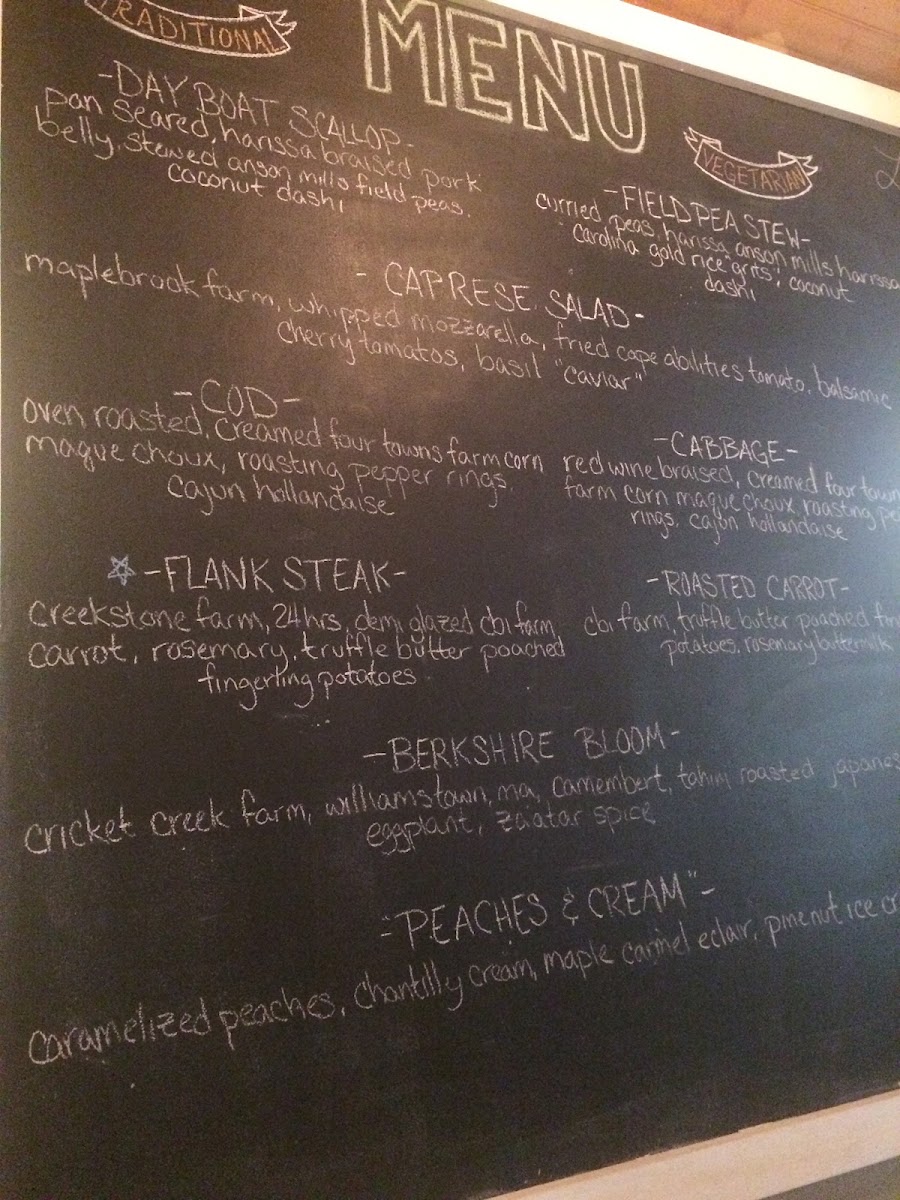 TRADITIONAL
MENU
-DAY BOAT SCALLOP-
pan seared, harissa braised pork
belly, stewed anson mills field peas,
coconut dashi
VEGETARIAN
-FIELD PEA STEW-
curried peas, harissa, anson mills harissa
carolina gold rice grits, coconut
dashi
- CAPRESE SALAD-
maplebrook farm, whipped mozzarella, fried cape abilities tomato, balsamic
cherry tomatos, basil "caviar"
-COD-
oven roasted, creamed four towns farm corn
maque choux, roasting pepper rings,
cajun hollandaise
-CABBAGE-
red wine braised, creamed four town
farm corn maque choux, roasting pe
rings, cajun hollandaise
-FLANK STEAK-
creekstone farm, 24hrs, demi glazed cbi farm
carrot, rosemary, truffle butter poached
fingerling potatoes
-ROASTED CARROT-
cbi farm, truffle butter poached fin
potatoes, rosemary buttermilk
-BERKSHIRE BLOOM-
cricket creek farm, williamstown, ma, camembert, tahini roasted japanes
eggplant, zaatar spice
-"PEACHES & CREAM"-
caramelized peaches, chantilly cream, maple carmel eclair, pine nut ice cr